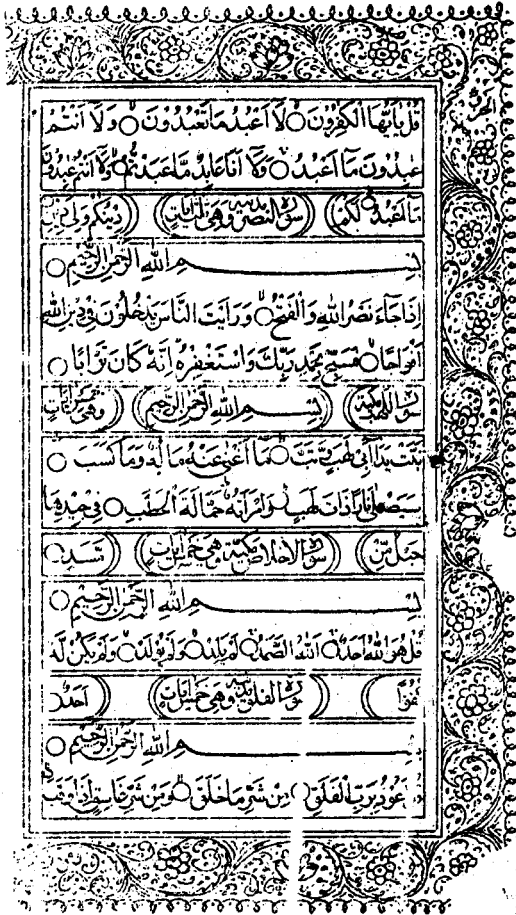 قُلْ يٰۤاَيُّهَا الْكٰفِرُوْنَ ○ لَاۤ اَعْبُدُ مَا تَعْبُدُوْنَ ○ وَلَاۤ اَنْتُمْ
عٰبِدُوْنَ مَاۤ اَعْبُدُ ○ وَلَاۤ اَنَا عَابِدٌ مَّا عَبَدْتُّمْ ○ وَلَاۤ اَنْتُمْ عٰبِدُوْنَ
مَاۤ اَعْبُدُ ○ لَكُمْ سورة النصر مدنية وهى ثلاث ايات دِيْنُكُمْ وَلِيَ دِيْنِ
بِسْمِ اللهِ الرَّحْمٰنِ الرَّحِيْمِ ○
اِذَا جَاۤءَ نَصْرُ اللهِ وَالْفَتْحُ ○ وَرَاَيْتَ النَّاسَ يَدْخُلُوْنَ فِيْ دِيْنِ اللهِ
اَفْوَاجًا ○ فَسَبِّحْ بِحَمْدِ رَبِّكَ وَاسْتَغْفِرْهُ اِنَّهٗ كَانَ تَوَّابًا ○
سورة اللهب مكية بِسْمِ اللهِ الرَّحْمٰنِ الرَّحِيْمِ وهى خمس ايات
تَبَّتْ يَدَاۤ اَبِيْ لَهَبٍ وَّتَبَّ ○ مَاۤ اَغْنٰى عَنْهُ مَالُهٗ وَمَا كَسَبَ ○
سَيَصْلٰى نَارًا ذَاتَ لَهَبٍ ○ وَامْرَاَتُهٗ حَمَّالَةَ الْحَطَبِ ○ فِيْ جِيْدِهَا
حَبْلٌ مِّنْ سورة الاخلاص مكية وهى خمس ايات مَّسَدٍ ○
بِسْمِ اللهِ الرَّحْمٰنِ الرَّحِيْمِ ○
قُلْ هُوَ اللهُ اَحَدٌ ○ اَللهُ الصَّمَدُ ○ لَمْ يَلِدْ ○ وَلَمْ يُوْلَدْ ○ وَلَمْ يَكُنْ لَّهٗ
كُفُوًا سورة الفلق مكية وهى خمس ايات اَحَدٌ ○
بِسْمِ اللهِ الرَّحْمٰنِ الرَّحِيْمِ ○
اَعُوْذُ بِرَبِّ الْفَلَقِ ○ مِنْ شَرِّ مَا خَلَقَ ○ وَمِنْ شَرِّ غَاسِقٍ اِذَا وَقَبَ